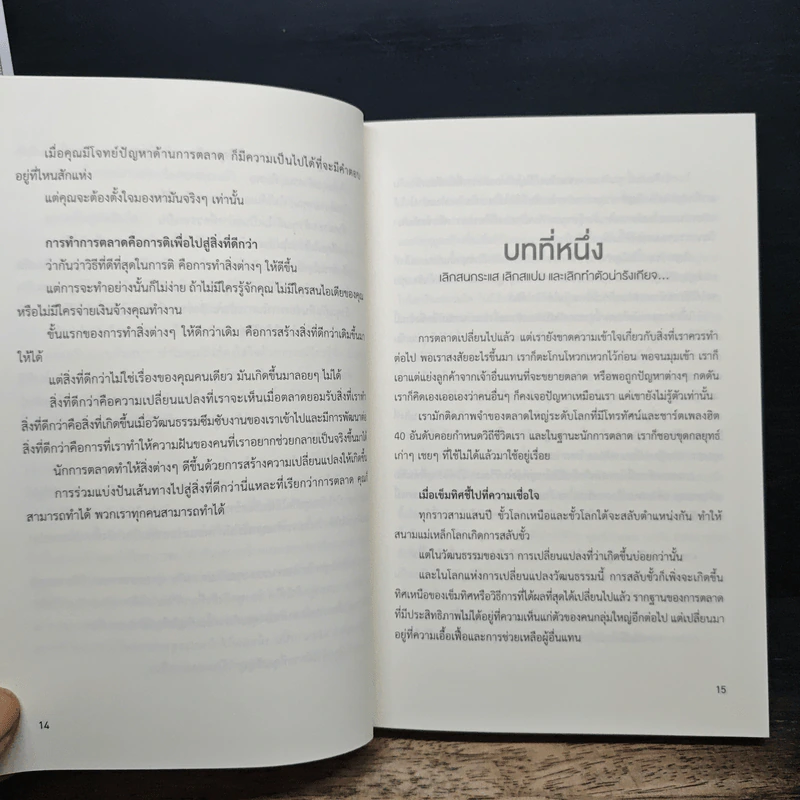 เมื่อคุณมีโจทย์ปัญหาด้านการตลาด ก็มีความเป็นไปได้ที่จะมีคำตอบ
อยู่ที่ไหนสักแห่ง
แต่คุณจะต้องตั้งใจมองหามันจริงๆ เท่านั้น
การทำการตลาดคือการติเพื่อไปสู่สิ่งที่ดีกว่า
ว่ากันว่าวิธีที่ดีที่สุดในการติ คือการทำสิ่งต่างๆ ให้ดีขึ้น
แต่การจะทำอย่างนั้นก็ไม่ง่าย ถ้าไม่มีใครรู้จักคุณ ไม่มีใครสนไอเดียของคุณ
หรือไม่มีใครจ่ายเงินจ้างคุณทำงาน
ขั้นแรกของการทำสิ่งต่างๆ ให้ดีกว่าเดิม คือการสร้างสิ่งที่ดีกว่าเดิมขึ้นมา
ให้ได้
แต่สิ่งที่ดีกว่าไม่ใช่เรื่องของคุณคนเดียว มันเกิดขึ้นมาลอยๆ ไม่ได้
สิ่งที่ดีกว่าคือความเปลี่ยนแปลงที่เราจะเห็นเมื่อตลาดยอมรับสิ่งที่เราทำ
สิ่งที่ดีกว่าคือสิ่งที่เกิดขึ้นเมื่อวัฒนธรรมซึมซับงานของเราเข้าไปและมีการพัฒนาต่อ
สิ่งที่ดีกว่าคือการที่เราทำให้ความฝันของคนที่เราอยากช่วยกลายเป็นจริงขึ้นมาได้
นักการตลาดทำให้สิ่งต่างๆ ดีขึ้นด้วยการสร้างความเปลี่ยนแปลงให้เกิดขึ้น
การร่วมแบ่งปันเส้นทางไปสู่สิ่งที่ดีกว่านี่แหละที่เรียกว่าการตลาด คุณก็
สามารถทำได้ พวกเราทุกคนสามารถทำได้
14
บทที่หนึ่ง
เลิกสนกระแส เลิกสแปม และเลิกทำตัวน่ารังเกียจ...
การตลาดเปลี่ยนไปแล้ว แต่เรายังขาดความเข้าใจเกี่ยวกับสิ่งที่เราควรทำ
ต่อไป พอเราสงสัยอะไรขึ้นมา เราก็ตะโกนโหวกเหวกไว้ก่อน พอจนมุมเข้า เราก็
เอาแต่แย่งลูกค้าจากเจ้าอื่นแทนที่จะขยายตลาด หรือพอถูกปัญหาต่างๆ กดดัน
เราก็คิดเองเออเองว่าคนอื่นๆ ก็คงเจอปัญหาเหมือนเรา แค่เขายังไม่รู้ตัวเท่านั้น
เรามักติดภาพจำของตลาดใหญ่ระดับโลก ที่มีโทรทัศน์และชาร์ตเพลงฮิต
40 อันดับคอยกำหนดวิถีชีวิตเรา และในฐานะนักการตลาด เราก็ชอบขุดกลยุทธ์
เก่าๆ เชยๆ ที่ใช้ไม่ได้แล้วมาใช้อยู่เรื่อย
เมื่อเข็มทิศชี้ไปที่ความเชื่อใจ
ทุกราวสามแสนปี ขั้วโลกเหนือและขั้วโลกใต้จะสลับตำแหน่งกัน ทำให้
สนามแม่เหล็กโลกเกิดการสลับขั้ว
แต่ในวัฒนธรรมของเรา การเปลี่ยนแปลงที่ว่าเกิดขึ้นบ่อยกว่านั้น
และในโลกแห่งการเปลี่ยนแปลงวัฒนธรรมนี้ การสลับขั้วก็เพิ่งจะเกิดขึ้น
ทิศเหนือของเข็มทิศหรือวิธีการที่ได้ผลที่สุดได้เปลี่ยนไปแล้ว รากฐานของการตลาด
ที่มีประสิทธิภาพไม่ได้อยู่ที่ความเห็นแก่ตัวของคนกลุ่มใหญ่อีกต่อไป แต่เปลี่ยนมา
อยู่ที่ความเอื้อเฟื้อและการช่วยเหลือผู้อื่นแทน
15